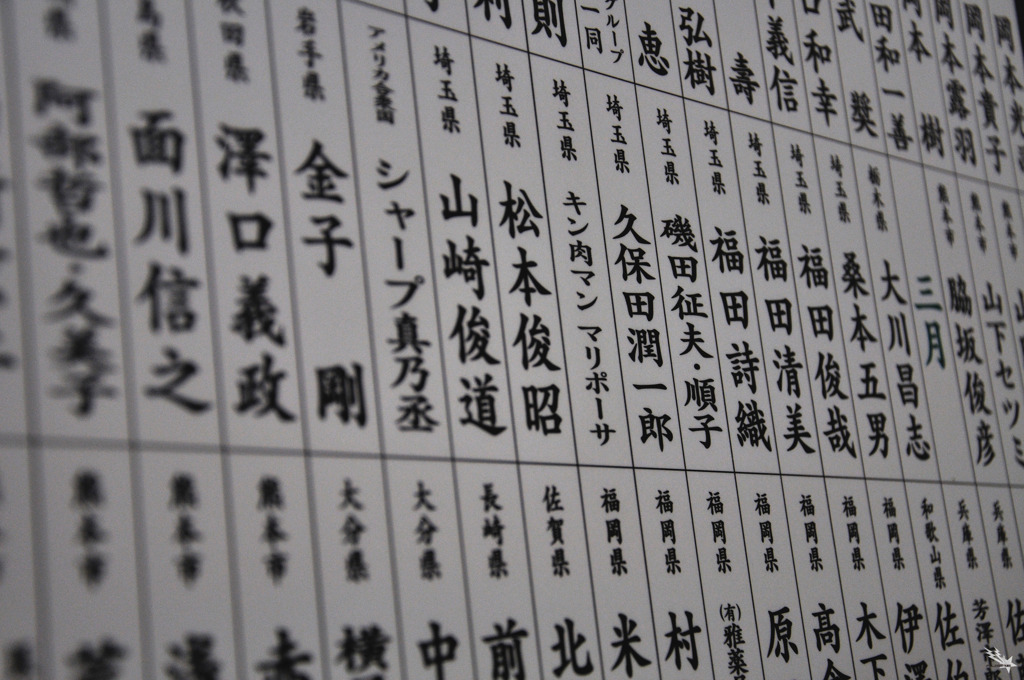 岡本光
岡本貴子
岡本露羽
岡本 樹
田和一善
武 奨
口和幸
義信
壽
弘樹
恵
グループ一同
則
利
熊本市 山下セツミ
熊本市 脇坂俊彦
三月
栃木県 大川昌志
埼玉県 桑本五男
埼玉県 福田俊哉
埼玉県 福田清美
埼玉県 福田詩織
埼玉県 磯田征夫・順子
埼玉県 久保田潤一郎
埼玉県 キン肉マン マリポーサ
埼玉県 松本俊昭
埼玉県 山崎俊道
アメリカ合衆国 シャープ真乃丞
岩手県 金子 剛
秋田県 澤口義政
島県 面川信之
県 阿部哲也・久美子
兵庫県 佐
兵庫県 芳澤
和歌山県 佐伯
福岡県 伊澤
福岡県 木下
福岡県 高倉
福岡県 原
福岡県 (有)雅薬
福岡県 村
福岡県 米
佐賀県 北
長崎県 前
大分県 中
大分県 横
熊本市
熊本市 澤
熊本市